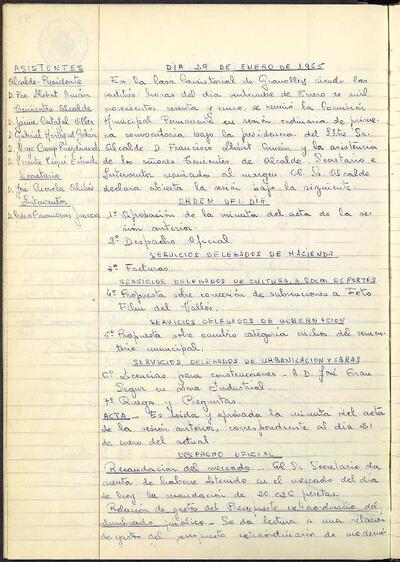 ASISTENTES
Alcalde-Presidente
D. Fco Llobet Arnán
Tenientes Alcalde
D. Jaime
D. Gabriel
D.
D. Vicente
Secretario
D. José
Interventor
D. Pedro Casanovas
DIA 29 DE ENERO DE 1965
En la Casa Consistorial de Granollers siendo las
veintidós horas del día veintinueve de Enero de mil
novecientos sesenta y cinco, se reunió la Comisión
Municipal Permanente en sesión ordinaria de prime-
ra convocatoria bajo la presidencia del Iltre Sr.
Alcalde D. Francisco Llobet Arnán y la asistencia
de los señores Tenientes de Alcalde, Secretario e
Interventor reseñados al margen. El Sr. Alcalde
declara abierta la sesión bajo la siguiente.
ORDEN DEL DIA
1º Aprobación de la minuta del acta de la se-
sión anterior
2º Despacho Oficial
SERVICIOS DELEGADOS DE HACIENDA
3º Facturas.
SERVICIOS DELEGADOS DE CULTURA, A. SOCIAL DEPORTES
4º Propuesta sobre concesión de subvenciones a Foto
Film del Vallés.
SERVICIOS DELEGADOS DE GOBERNACION
5º Propuesta sobre cambio categoría nichos del cemen-
terio municipal.
SERVICIOS DELEGADOS DE URBANIZACION Y OBRAS
6º Licencias para construcciones - A D. José Grau
Segur en Zona Industrial.
7º Ruegos y Preguntas.
ACTA - Es leída y aprobada la minuta del acta
de la sesión anterior, correspondiente al día 21
de enero del actual.
DESPACHO OFICIAL
Recaudación del mercado. - El Sr. Secretario da
cuenta de haberse obtenido en el mercado del día
de hoy la recaudación de 20.025 pesetas.
Relación de gastos del Presupuesto extraordinario del
alumbrado público. - Se da lectura a una relación
de gastos del presupuesto extraordinario de moderni-